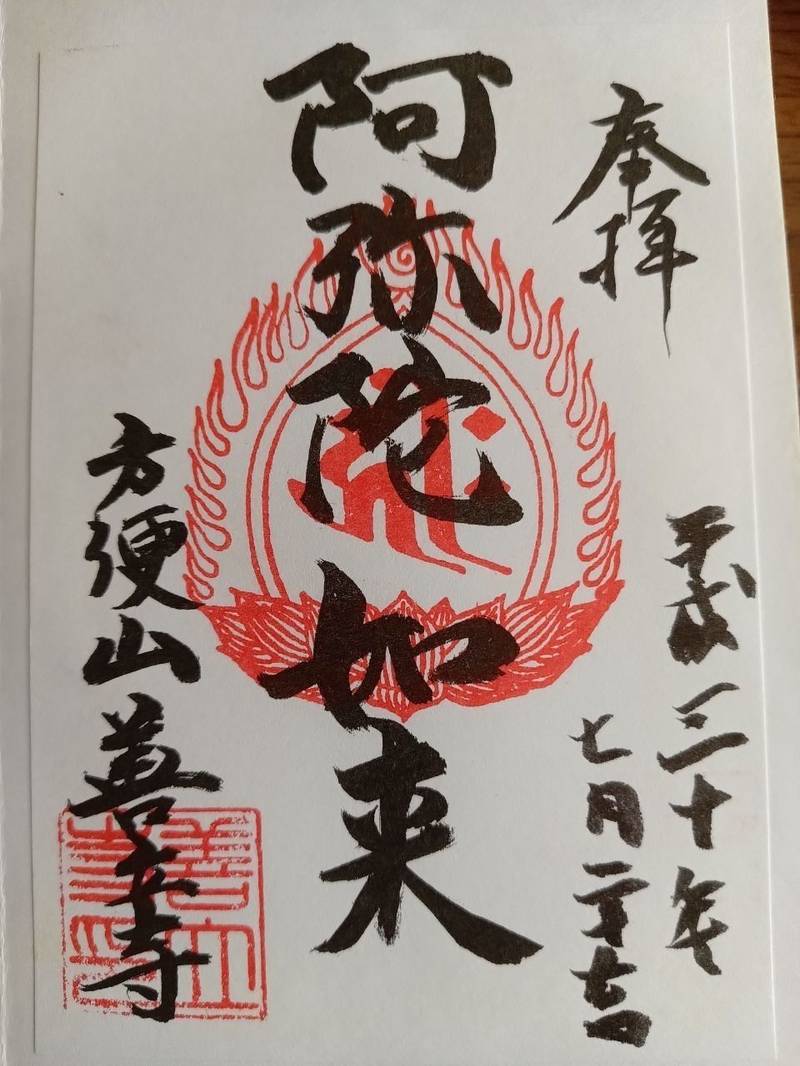 奉拝
平成三十年
七月二十七日
阿弥陀如来
方便山 善立寺
善立
寺印